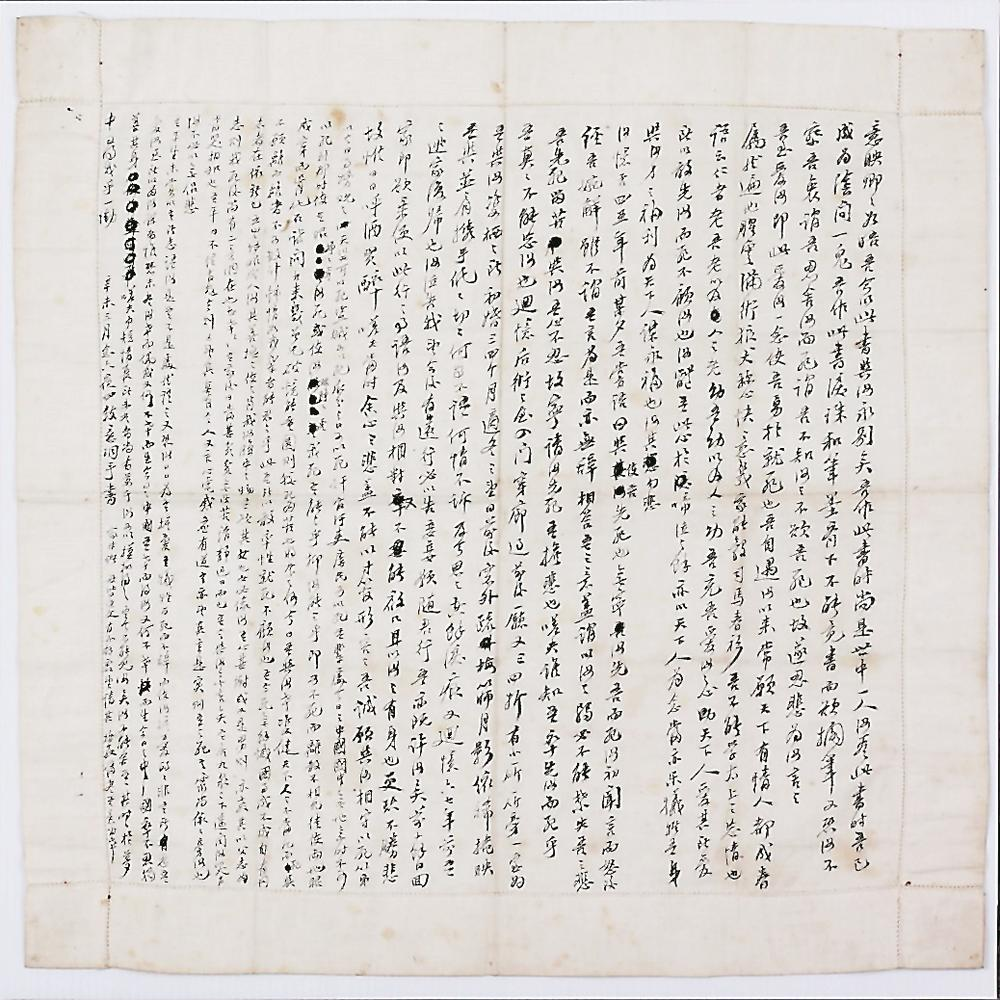 意映卿卿如晤吾今以此書與汝永別矣吾作此書時尚是世中一人汝看此書時吾已
成為陰間一鬼吾作此書淚珠和筆墨齊下不能竟書而欲擱筆又恐汝不
察吾衷謂吾忍舍汝而死謂吾不知汝之不欲吾死也故遂忍悲為汝言之
吾至愛汝即此愛汝一念使吾勇於就死也吾自遇汝以來常願天下有情人都成眷
屬然遍地腥雲滿街狼犬稱心快意幾家能彀司馬春衫吾不能學太上之忘情也
語云仁者老吾老以及人之老幼吾幼以及人之幼吾充吾愛汝之心助天下人愛其所愛
所以敢先汝而死不顧汝也汝體吾此心於啼泣之餘亦以天下人為念當亦樂犧牲吾身
與汝身之福利為天下人謀永福也汝其勿悲
汝憶否四五年前某夕吾嘗語曰與使吾先死也無寧汝先吾而死汝初聞言而怒後
經吾婉解雖不謂吾言為是而亦無辭相答吾之意蓋謂以汝之弱必不能禁失吾之悲
吾先死留苦與汝吾心不忍故寧請汝先死吾擔悲也嗟夫誰知吾卒先汝而死乎
吾真真不能忘汝也迴憶后街之屋入門穿廊過前後廳又三四折有小廳廳旁一室為
吾與汝雙栖之所初婚三四个月適冬之望日前後窗外疏梅篩月影依稀掩映
吾與並肩攜手低低切切何事不語何情不訴及今思之空餘淚痕又迴憶六七年前吾
之逃家復歸也汝泣告我望今後有遠行必以告妾妾願隨君行吾亦既許汝矣前十餘日回
家即欲乘便以此行之事語汝及與汝相對又不能啟口且以汝之有身也更恐不勝悲
故惟日日呼酒買醉嗟夫當時余心之悲蓋不能以寸管形容之吾誠願與汝相守以死第
以今日事勢觀之天災可以死盜賊可以死瓜分之日可以死奸官污吏虐民可以死吾輩處今日之中國國中無地無時不可
以死到那時使吾眼睜睜看汝死或使汝眼睜睜看我死吾能之乎抑汝能之乎即可不死而離散不相見徒使兩地眼
成穿而骨化石試問古來幾曾見破鏡能重圓則較死為苦也將奈之何今日吾與汝幸雙健天下人之不當死而死與
不願離而離者不可數計鍾情如我輩者能忍之乎此吾所以敢率性就死不顧汝也吾今死無餘憾國事成不成自有同
志者在依新已五歲轉眼成人汝其善撫之使之肖我汝腹中之物吾疑其女也女必像汝吾心甚慰或又是男則亦教其以父志為
志則我死後尚有二意洞在也幸甚幸甚吾家後日當甚貧貧無所苦清靜過日而已吾今與汝無言矣吾居九泉之下遙聞汝哭聲
當哭相和也吾平日不信有鬼今則又望其真有今人又言心電感應有道吾亦望其言是實則吾之死吾靈尚依依旁汝也
汝不必以無侶悲
吾平生未嘗以吾所志語汝是吾不是處然語之又恐汝日日為吾擔憂吾犧牲百死而不辭而使汝擔憂的的非吾所忍吾
愛汝至所以為汝謀者惟恐未盡汝幸而偶我又何不幸而生今日之中國吾幸而得汝又何不幸而生今日之中國卒不忍獨
善其身嗟夫巾短情長所未盡者尚有萬千汝可以模擬得之吾今不能見汝矣汝不能舍吾其時時於夢
中得我乎一慟 辛未三月念六夜四鼓意洞手書